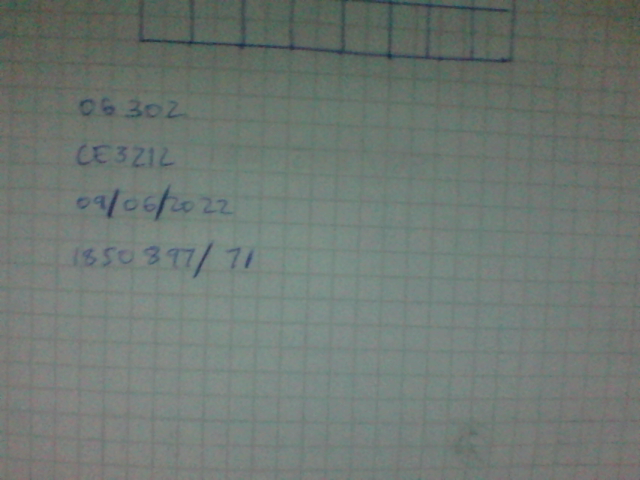 06302
CE3212
09/06/2022
1850897/71